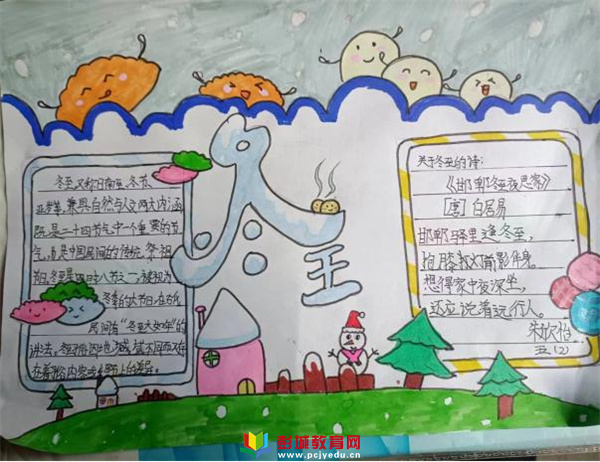 冬至
冬至又称日南至、冬节、
亚岁等，兼具自然与人文两大内涵，
既是二十四节气中一个重要的节
气，也是中国民间的传统祭祖
节日。冬至是四时八节之一，被视为
冬季的大节日，在古代
民间有“冬至大如年”的
讲法。冬至习俗因地域不同而又存
在着习俗内容或细节上的差异。
关于冬至的诗：
《邯郸冬至夜思家》
［唐］白居易
邯郸驿里逢冬至，
抱膝灯前影伴身。
想得家中夜深坐，
还应说着远行人。
五（2）
彭城教育网
www.pcjyedu.cn